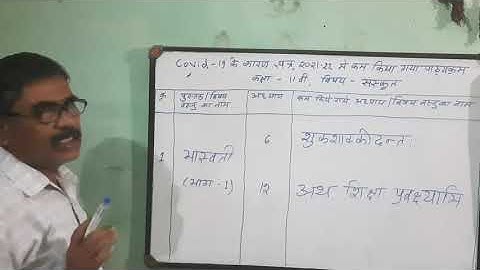 Covid-19 के कारण सत्र 2021-22 में कम किया गया पाठ्यक्रम
कक्षा - 11 वी, विषय - संस्कृत
क्र. पुस्तक/विषय वस्तु का नाम अध्याय कम किये गये अध्याय/विषय वस्तु का नाम
6 शुकशावकोदन्तः
1 भास्वती
(भाग-1) 12 अथ शिक्षा प्रवक्ष्यामि